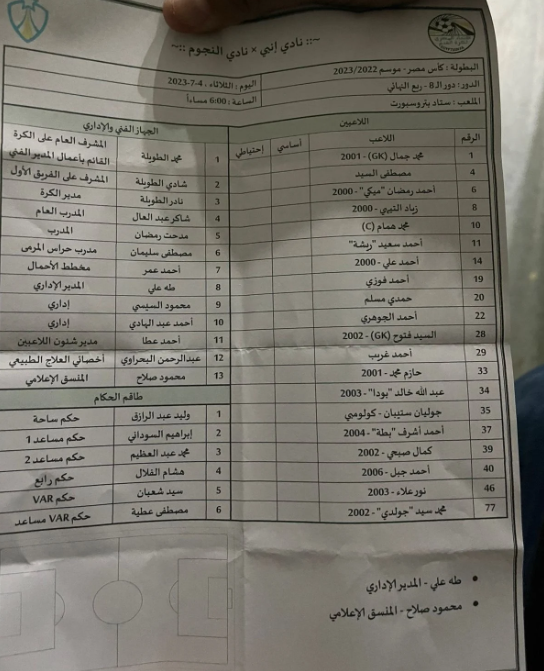 ~:: نادي إنبي × نادي النجوم ::~
البطولة : كأس مصر - موسم 2023/2022
اليوم : الثلاثاء ، 4-7-2023
الدور: دور الـ 8 - ربع النهائي
الساعة : 6:00 مساءاً
الملعب : ستاد بتروسبورت
اللاعبين
الرقم اللاعب أساسي إحتياطي
1 محمد جمال (GK) - 2001
4 مصطفى السيد
6 أحمد رمضان "ميكي" - 2000
8 زياد النبي - 2000
10 محمد همام (C)
11 أحمد سعيد "ريشة"
14 أحمد علي - 2000
19 أحمد فوزي
20 حمدي مسلم
22 أحمد الجوهري
28 السيد فتوح (GK) - 2002
29 أحمد غريب
33 حازم محمد - 2001
34 عبد الله خالد "بودا" - 2003
35 جوليان ستيبان - كولومبي
37 أحمد أشرف "بطة" - 2004
39 كمال صبحي - 2002
40 أحمد جبل - 2006
46 نور علاء - 2003
77 محمد سيد "جولدي" - 2002
الجهاز الفني والإداري
1 محمد الطويلة المشرف العام على الكرة
القائم بأعمال المدير الفني
2 شادي الطويلة المشرف على الفريق الأول
3 نادر الطويلة مدير الكرة
4 شاكر عبد العال المدرب العام
5 مدحت رمضان المدرب
6 مصطفى سليمان مدرب حراس المرمى
7 أحمد عمر مخطط الأحمال
8 طه علي المدير الإداري
9 محمود السيسي إداري
10 أحمد عبد الهادي إداري
11 أحمد عطا مدير شئون اللاعبين
12 عبدالرحمن البحراوي أخصائي العلاج الطبيعي
13 محمود صلاح المنسق الإعلامي
طاقم الحكام
1 وليد عبد الرازق حكم ساحة
2 إبراهيم السوداني حكم مساعد 1
3 محمد عبد العظيم حكم مساعد 2
4 هشام القلال حكم رابع
5 سيد شعبان حكم VAR
6 مصطفى عطية حكم VAR مساعد
• طه علي - المدير الإداري
• محمود صلاح - المنسق الإعلامي